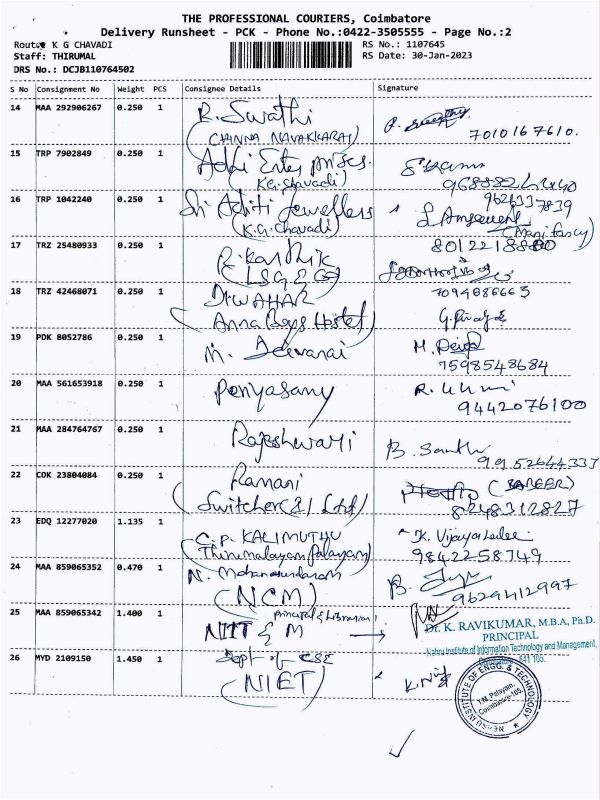 THE PROFESSIONAL COURIERS, Coimbatore
Delivery Runsheet - PCK - Phone No.:0422-3505555 - Page No.:2
Route K G CHAVADI
RS No.: 1107645
Staff: THIRUMAL
RS Date: 30-Jan-2023
DRS No.: DCJB110764502
S No Consignment No Weight PCS Consignee Details Signature
14 MAA 292906267 0.250 1 R. Swathi
(CHINNA NAVAKKARAI) 7010167610.
15 TRP 7902849 0.250 1 Adhi Enterprises.
(K.G. Chavadi)
16 TRP 1042240 0.250 1 Sri Aditi Jewellers 9626337839
(K.G. Chavadi)
17 TRZ 25480933 0.250 1 R. Karthik
18 TRZ 42468071 0.250 1 DIWAHAR 7094086663
(Anna Boys Hostel)
19 PDK 8052786 0.250 1 M. Deivanai M. Deiva
7598548684
20 MAA 561653918 0.250 1 Periyasamy
9442076100
21 MAA 284764767 0.250 1 Rajeshwari B. Santh
9952644337
22 COK 23804084 0.250 1 Ramani
8248312827
23 EDQ 12277020 1.135 1 C.P. KALIMUTHU K. Vijaya
(Thirumalayam Palayam) 9842258749
24 MAA 859065352 0.470 1 N. Mohanasundaram
(NCM) 9629412997
25 MAA 859065342 1.400 1 principal & Librarian
NIIT & M
Dr. K. RAVIKUMAR, M.B.A, Ph.D.
PRINCIPAL
Nehru Institute of Information Technology and Management,
Coimbatore - 641 105.
26 MYD 2109150 1.450 1 Dept of CSE
(NIET)
NEHRU INSTITUTE OF ENGG. & TECHNOLOGY
T.M. Palayam,
Coimbatore-105.